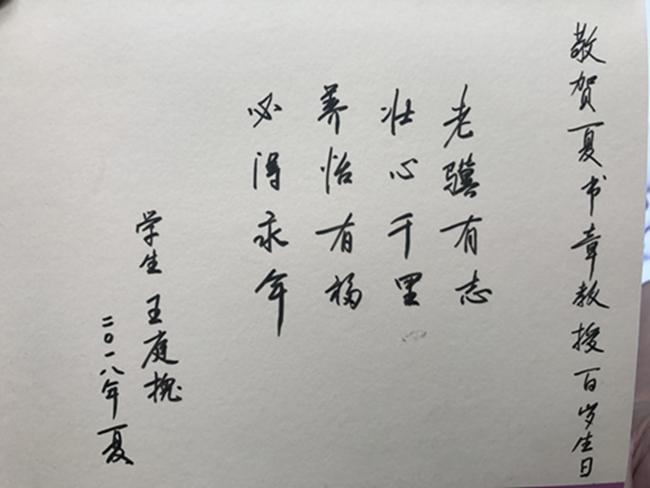 敬贺夏书章教授百岁生日
老骥有志
壮心千里
养怡有福
必得永年
学生 王庭槐
二〇一八年夏